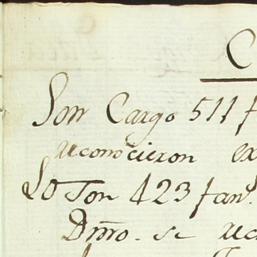 C
Son Cargo 511 f
reconocieron ex
Son 423 fan.
Dmro. se